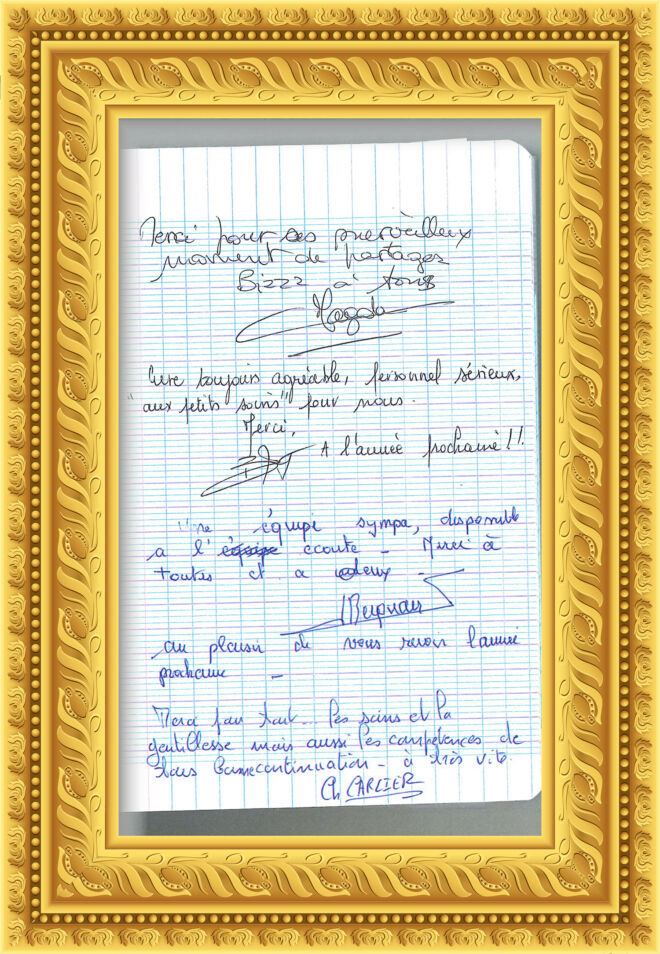 Merci pour ces merveilleux
moment de partages
Bizzz à tous
Magda
Cure toujours agréable, personnel sérieux,
"aux petits soins" pour nous.
Merci,
A l'année prochaine !!
Une équipe sympa, disponible
a l'équipe ecoute - Merci à
toutes et a deux -
au plaisir de vous revoir l'année
prochaine -
Merci pour tout... les soins et la
gentillesse mais aussi les compétences de
tous bonne continuation - à très vite.
Ch CARLIER